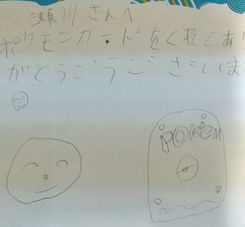 瀬川さんへ
ポケモンカードをくれてあり
がとうごうございま
POKEM